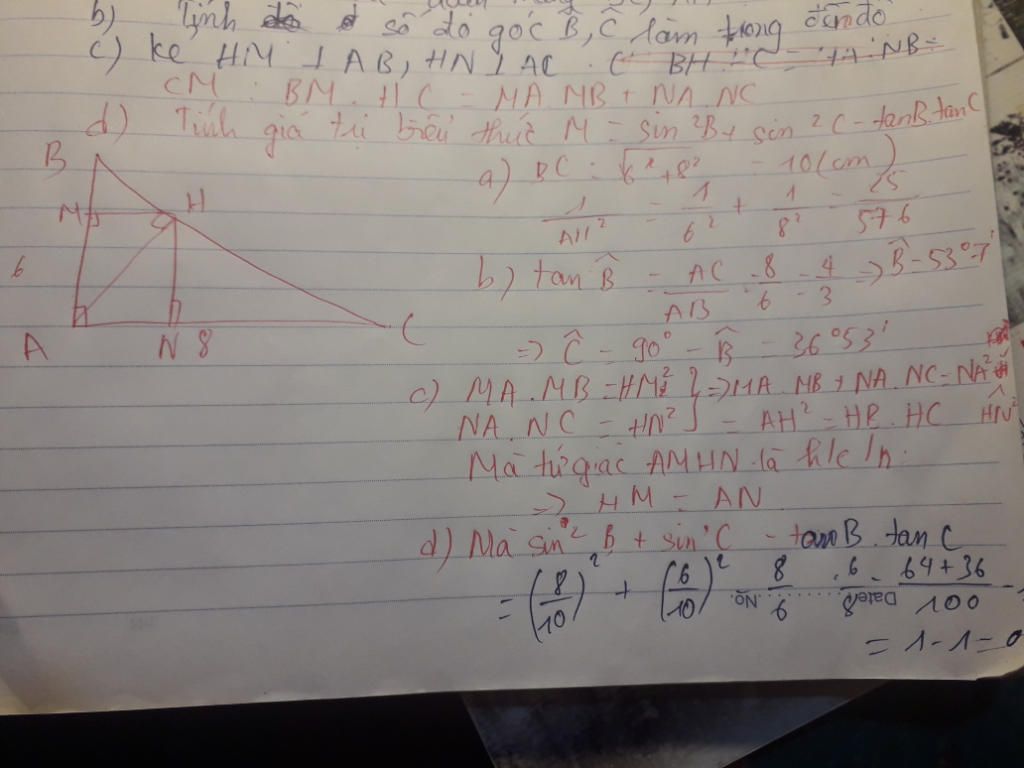 b) Tính số đo góc B̂, Ĉ làm trong đến độ
c) kẻ HM ⊥ AB, HN ⊥ AC.
CM : BM . HC = MA.MB + NA.NC
d) Tính giá trị biểu thức M = sin²B + sin²C - tanB.tanC
B
M
H
6
A
N
8
C
a) BC = √6²+8² = 10 (cm)
1/AH² = 1/6² + 1/8² = 25/576
b) tan B̂ = AC/AB = 8/6 = 4/3 => B̂ = 53°7'
=> Ĉ = 90° - B̂ = 36°53'
c) MA.MB = HM² } => MA.MB + NA.NC = NA²
NA.NC = HN² } = AH² = HB.HC HN²
Mà tứ giác AMHN là h/c/n
=> HM = AN
d) Mà sin²B + sin²C - tanB.tanC
= (8/10)² + (6/10)² 8/6 . 6/8 = 64+36/100 -
No. Date
= 1-1=0